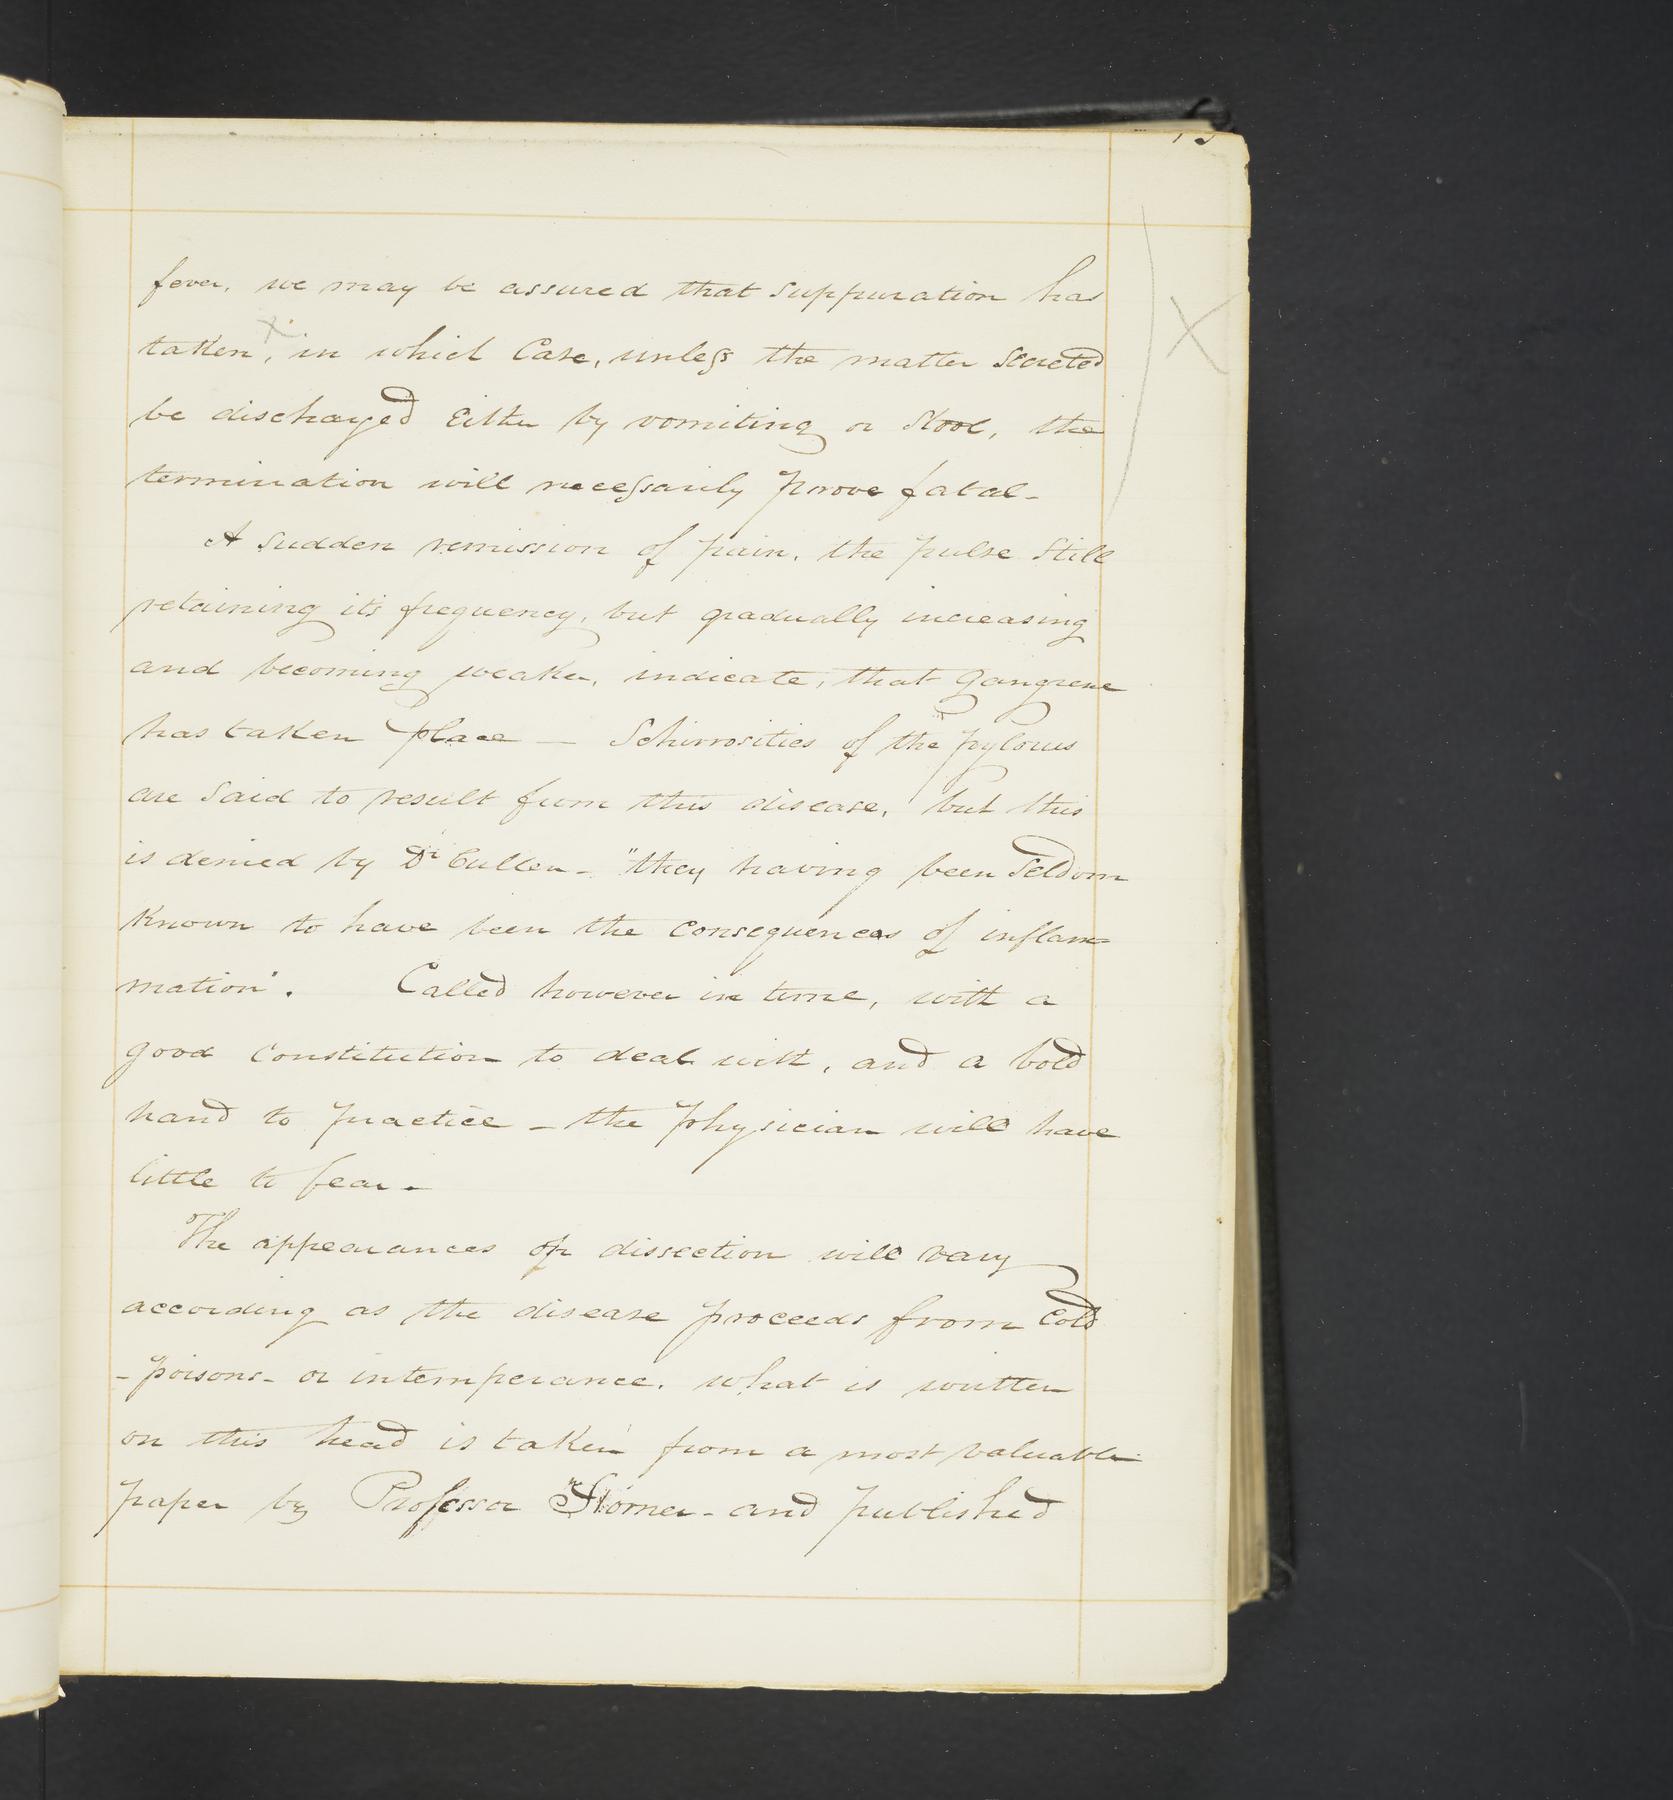 fever, we may be assured that suppuration has
taken, in which Case, unless the matter Secreted
be discharged Either by vomiting or Stool, the
termination will necessarily prove fatal-
A sudden remission of pain, the pulse Still
retaining it's frequency, but gradually increasing
and becoming weaker, indicate, that Gangrene
has taken place — Schirrosities of the "pylorus
are Said to result from this disease, but this
is denied by Dr Cullen - "they having been Seldom
Known to have been the Consequences of inflam=
mation". Called however in time, with a
good Constitution to deal with, and a bold
hand to practice - the physician will have
little to fear -
The appearances on dissection will vary
according as the disease proceeds from Cold
- poisons - or intemperance. what is written
on this head is taken from a most valuable
paper by Professor "Horner - and published